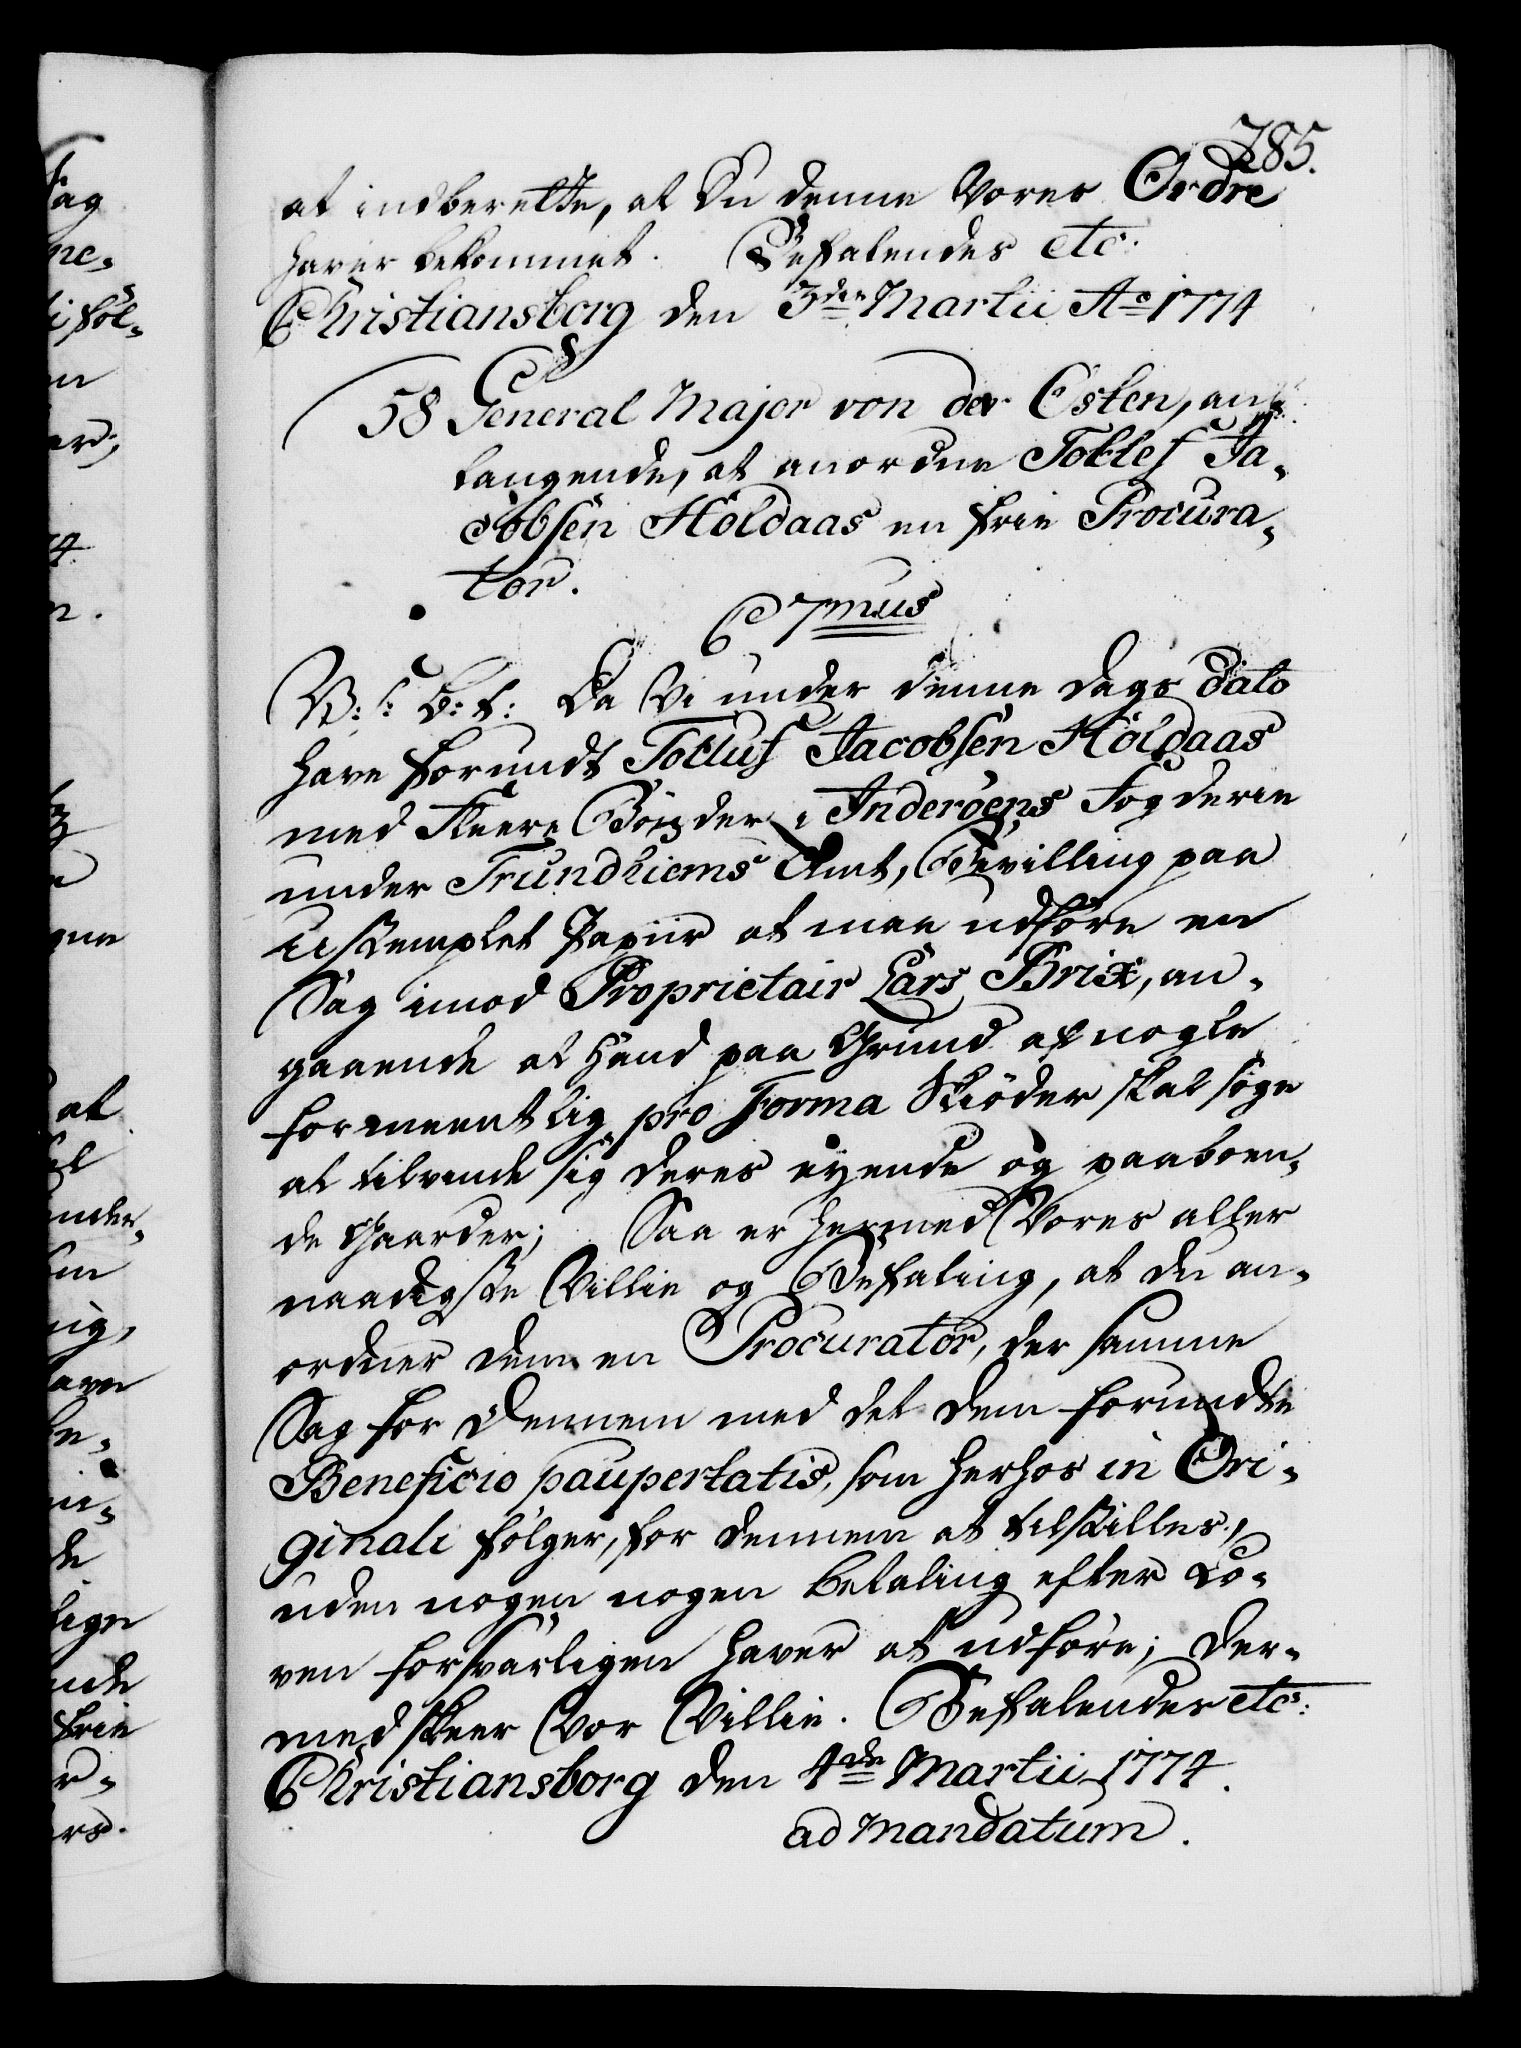 785.
at indberette, at Du denne Vores Ordre
haver bekommet. Befalendes etc.
Christiansborg den 3den Martii Ao 1774
58 General Major von der Osten, an-
langende, at anordne Tollef Ja-
cobsen Höldaas en frie Procura-
tor.
C 7mus
V: s: B: t: Da Vi under denne Dags dato
have forundt Tolluf Jacobsen Höldaas
med fleere Bönder i Inderöens Fogderie
under Trundhiems Amt, Bevilling paa
ustemplet Papiir at maa udföre en
Sag imod Proprietair Lars Brix, an-
gaaende at hand paa Grund af nogle
formeentlig pro Forma Skiöder skal söge
at tilvende sig deres eyende og paaboen-
de Gaarder; Saa er hermed Vores aller
naadigste Villie og Befaling, at du an-
ordner dem en Procurator, der samme
Sag for dennem med det dem forundte
Beneficio paupertatis, som herhos in Ori-
ginali fölger, for dennem at tilstilles,
uden nogen nogen betaling efter Lo-
ven forsvarligen haver at udföre; Der-
med skeer Vor Villie. Befalendes etc:
Christiansborg den 4de Martii 1774.
ad Mandatum.